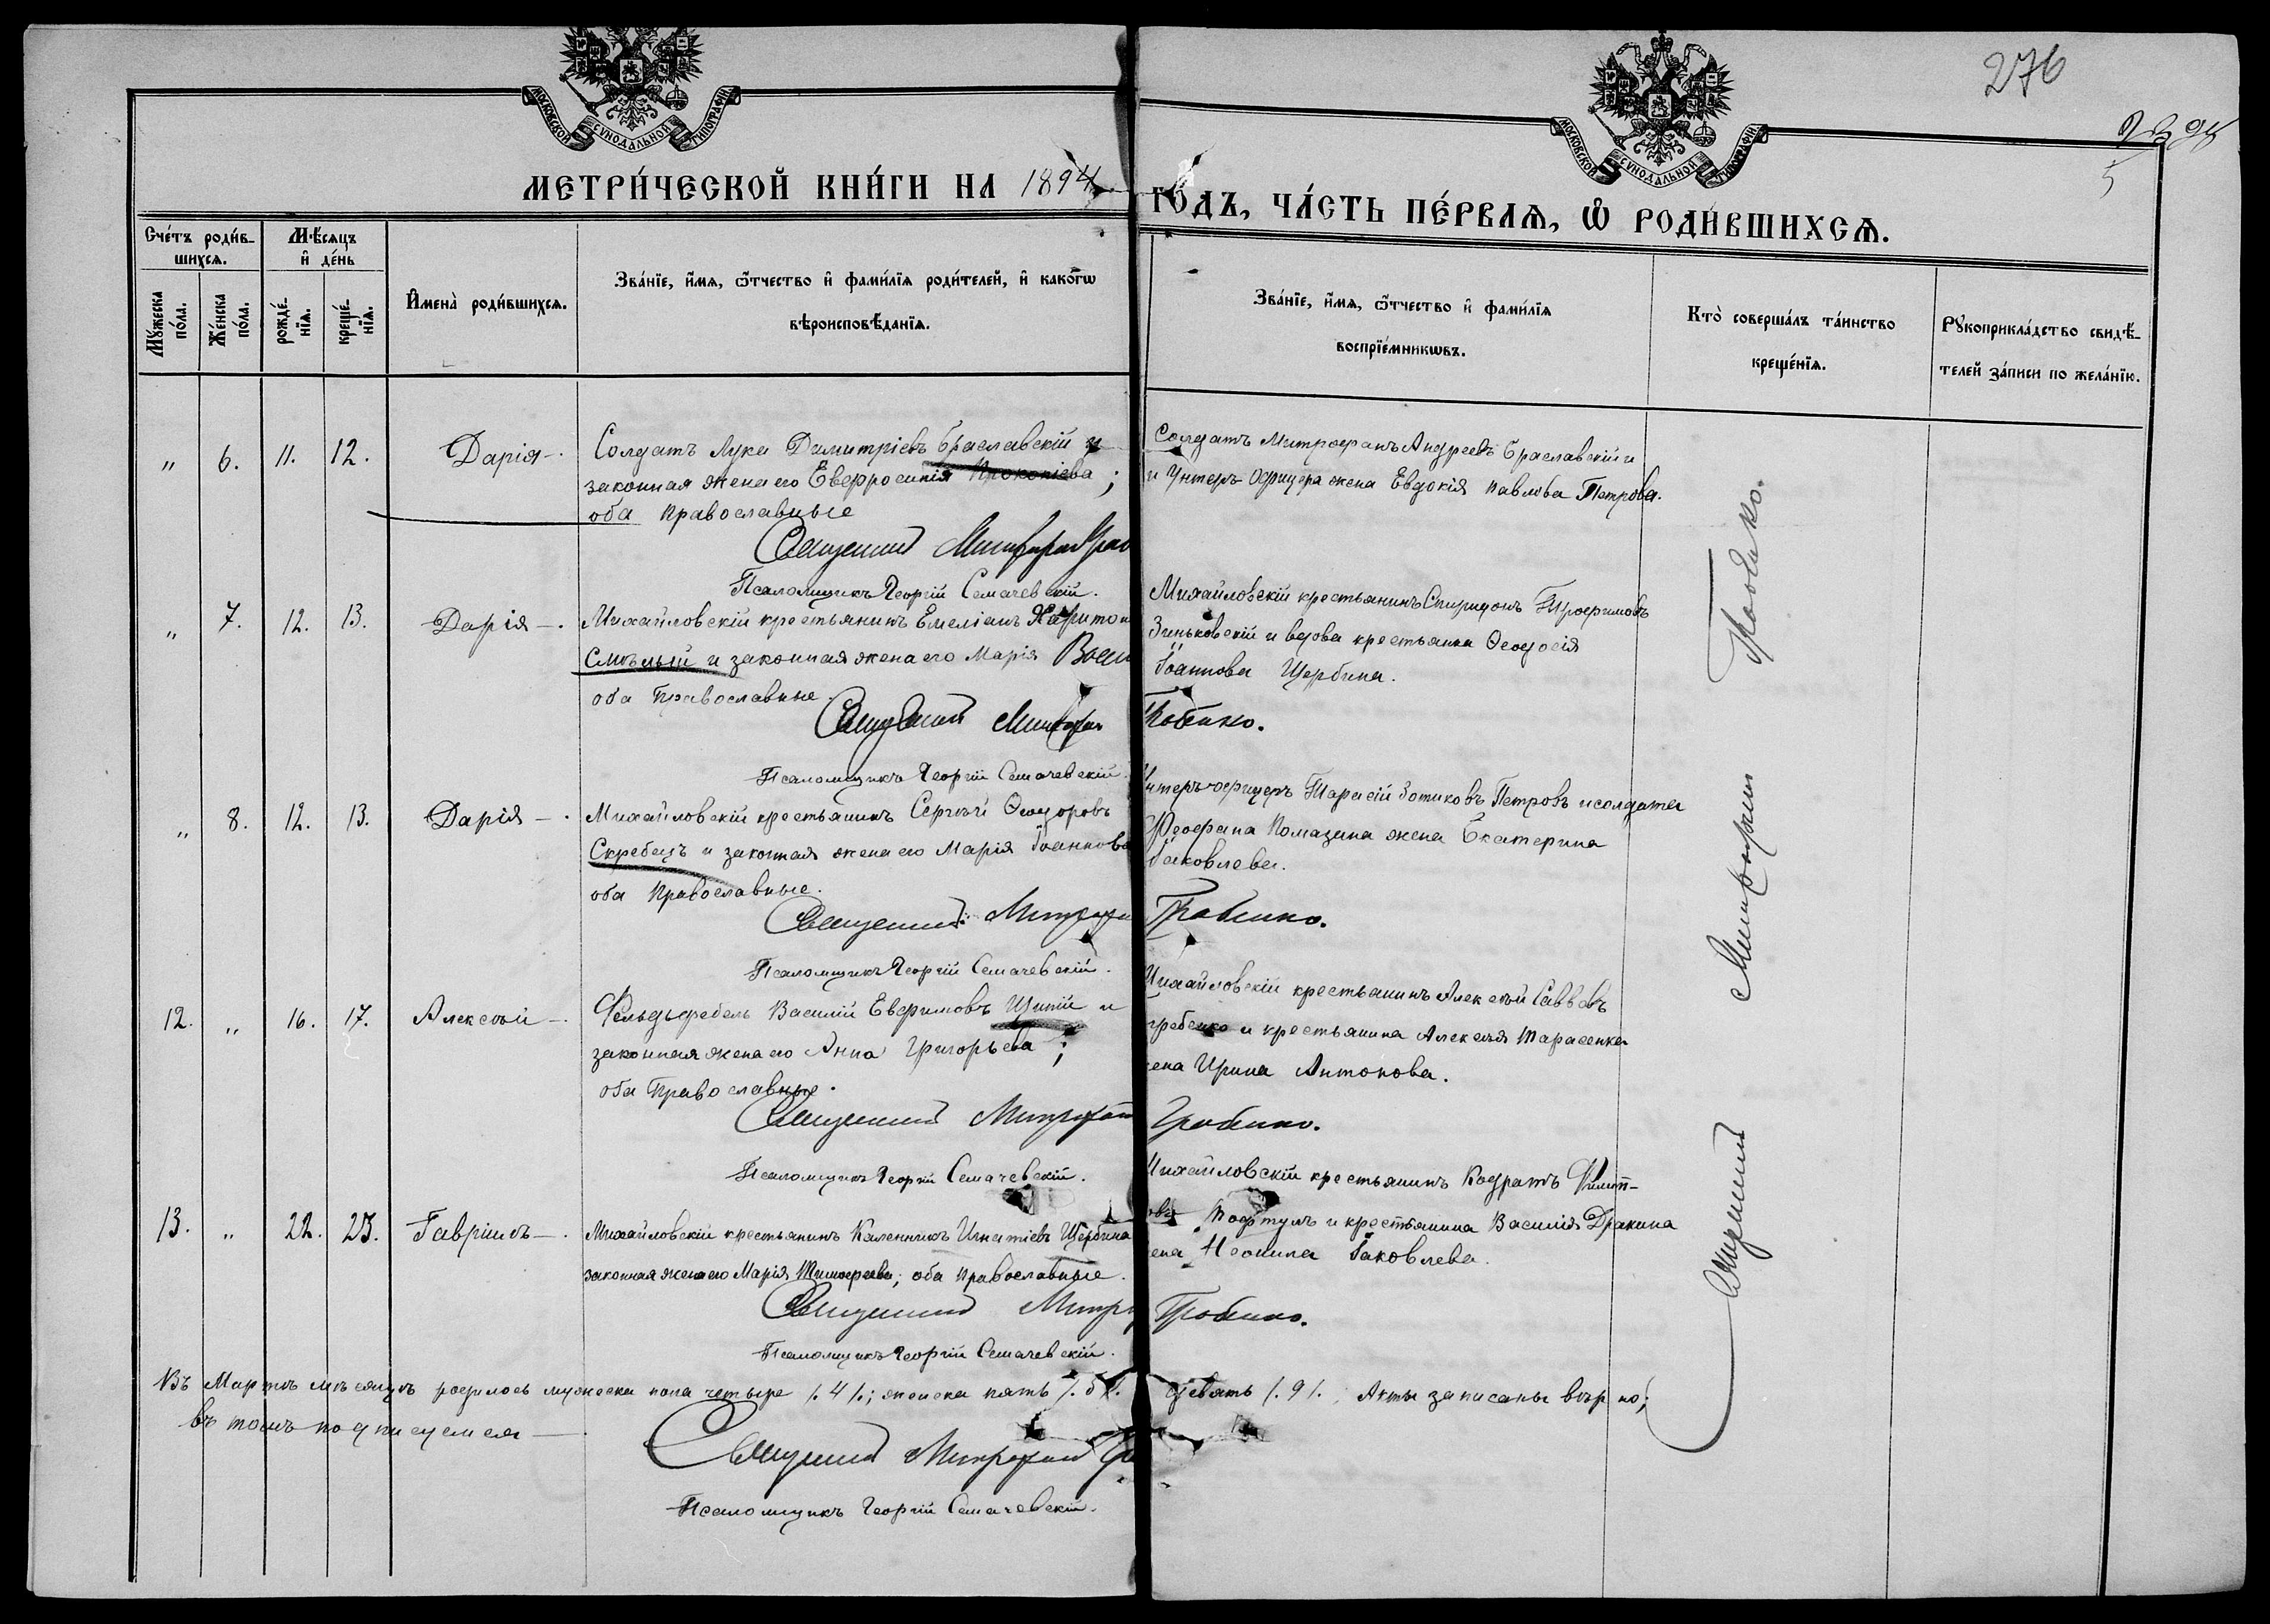 276
МОСКОВСКОЙ СУНОДАЛЬНОЙ ТИПОГРАФІИ
МОСКОВСКОЙ СУНОДАЛЬНОЙ ТИПОГРАФІИ
5
МЕТРИ́ЧЕСКОЙ КНИ́ГИ НА 1894
ГО́ДЪ, ЧА́СТЬ ПЕ́РВАЯ, Ѡ РОДИ́ВШИХСЯ.
Сче́тъ роди́в-
шихся.
Мѣ́сяцъ
и де́нь
Мꙋ́жеска
по́ла.
Же́нска
по́ла.
рожде́-
нїя.
креще́-
нїя.
И҆мена̀ роди́вшихся.
Зва́нїе, и҆́мя, ѻ҆́тчество и҆ фами́лїя роди́телей, и҆ како́гѡ
вѣроисповѣ́данїя.
Зва́нїе, и҆́мя, ѻ҆́тчество и҆ фами́лїя
воспрїе́мникѡвъ.
Кто̀ соверша́лъ та́инство
креще́нїя.
Рꙋкоприкла́дство свидѣ́-
телей за́писи по жела́нїю.
„ 6. 11. 12. Дарія —.
Солдатъ Лука Димитріевъ Браславскій и
законная жена его Евфросинія Прокопіева;
оба православные
Священник Митрофан
Псаломщикъ Георгій Семачевскій.
Солдатъ Митрофанъ Андреевъ Браславскій и
и Унтеръ-Офицера жена Евдокія Павлова Петрова.
„ 7. 12. 13. Дарія —.
Михайловскій крестьянинъ Емеліанъ Харитон
Смѣлый и законная жена его Марія
оба Православные.
Священник Митрофан
Псаломщикъ Георгій Семачевскій.
Михайловскій крестьянинъ Спиридонъ Трофимовъ
Зиньковскій и вдова крестьянка Ѳеодосія
Іоаннова Щербина.
„ 8. 12. 13. Дарія —.
Михайловскій крестьянинъ Сергѣй Ѳеодоровъ
Скребецъ и законная жена его Марія Іоаннова
оба Православные.
Священник Митрофан
Псаломщикъ Георгій Семачевскій.
Унтеръ-офицеръ Тарасій Зотиковъ Петровъ и солдата
Ѳеофана Помазана жена Екатерина
Іаковлева.
12. „ 16. 17. Алексѣй —.
Фельдфебель Василій Евфимовъ и
законная жена его Анна Григорьева;
оба Православные.
Священник Митрофан
Псаломщикъ Георгій Семачевскій.
Михайловскій крестьянинъ Алексѣй Саввовъ
Гребенко и крестьянина Алексѣя Тарасенка
жена Ирина Антонова.
13. „ 22. 23. Гавріилъ —.
Михайловскій крестьянинъ Каленникъ Игнатіевъ Щербина
законная жена его Марія Тимофеева; оба православные.
Священник Митр
Псаломщикъ Георгій Семачевскій.
Михайловскій крестьянинъ Кодратъ Филип-
овъ и крестьянина Василія Дракина
жена Неонила Іаковлева.
Священник Митрофан
Въ Мартѣ мѣсяцѣ родилось мужеска пола четыре /. 4 /.; женска пять /. 5 /.
девять /. 9 /. Акты записаны вѣрно;
въ томъ подписуемся —.
Священник Митрофан
Псаломщикъ Георгій Семачевскій.